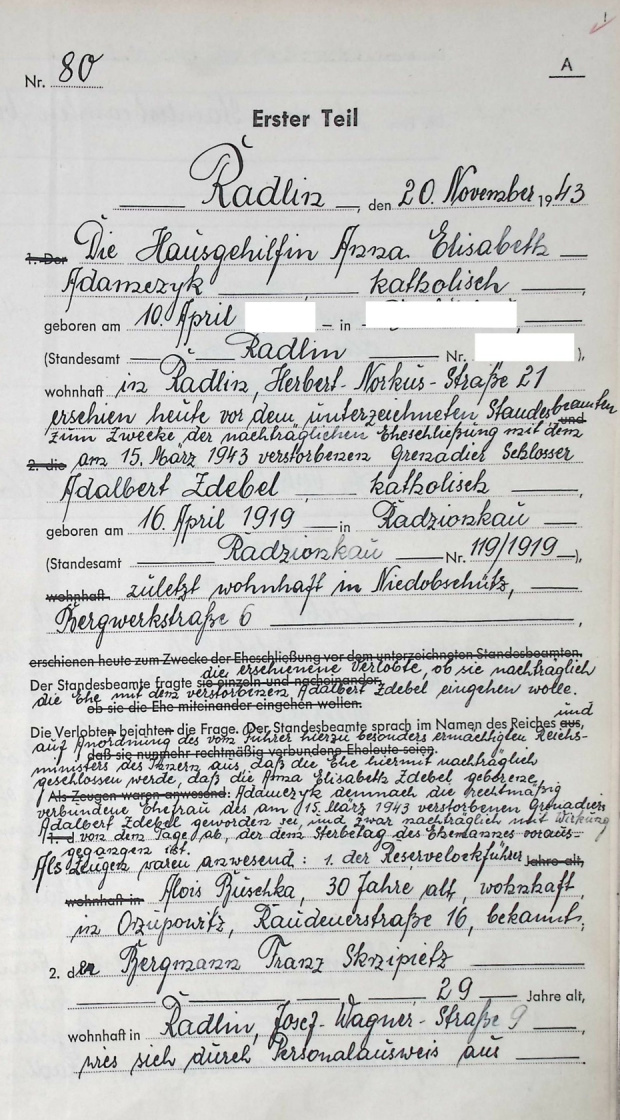 Nr. 80
A
Erster Teil
Radlin, den 20. November 1943
1. Der Die Hausgehilfin Anna Elisabeth
Adamczyk katholisch,
geboren am 10. April in
(Standesamt Radlin Nr. ),
wohnhaft in Radlin, Herbert-Norkus-Straße 21
erschien heute vor dem unterzeichneten Standesbeamten und
zum Zwecke der nachträglichen Eheschließung mit dem
2. die am 15. März 1943 verstorbenen Grenadier Schlosser
Adalbert Zdebel, katholisch,
geboren am 16. April 1919 in Radzionkau
(Standesamt Radzionkau Nr. 119/1919),
wohnhaft zuletzt wohnhaft in Niedobschütz,
Bergwerkstraße 6,
erschienen heute zum Zwecke der Eheschließung vor dem unterzeichneten Standesbeamten.
die erschienene Verlobte, ob sie nachträglich
Der Standesbeamte fragte sie einzeln und nacheinander,
die Ehe mit dem verstorbenen Adalbert Zdebel eingehen wolle.
ob sie die Ehe miteinander eingehen wollen.
und
Die Verlobten bejahten die Frage. Der Standesbeamte sprach im Namen des Reiches aus,
auf Anordnung des vom Führer hierzu besonders ermächtigten Reichs-
daß sie nunmehr rechtmäßig verbundene Eheleute seien.
ministers des Innern aus, daß die Ehe hiermit nachträglich
geschlossen werde, daß die Anna Elisabeth Zdebel geborene
Als Zeugen waren anwesend: Adamczyk demnach die rechtmäßig
verbundene Ehefrau des am 15. März 1943 verstorbenen Grenadiers
Adalbert Zdebel geworden sei, und zwar nachträglich mit Wirkung
1. d von dem Tage ab, der dem Sterbetag des Ehemannes voraus-
gegangen ist.
Als Zeugen waren anwesend: 1. der Reservelockführer Jahre alt,
wohnhaft in Alois Buschka, 30 Jahre alt, wohnhaft
in Orzupowitz, Raudenerstraße 16, bekannt;
2. der Bergmann Franz Skrzipietz
29 Jahre alt,
wohnhaft in Radlin, Josef-Wagner-Straße 9,
wies sich durch Personalausweis aus